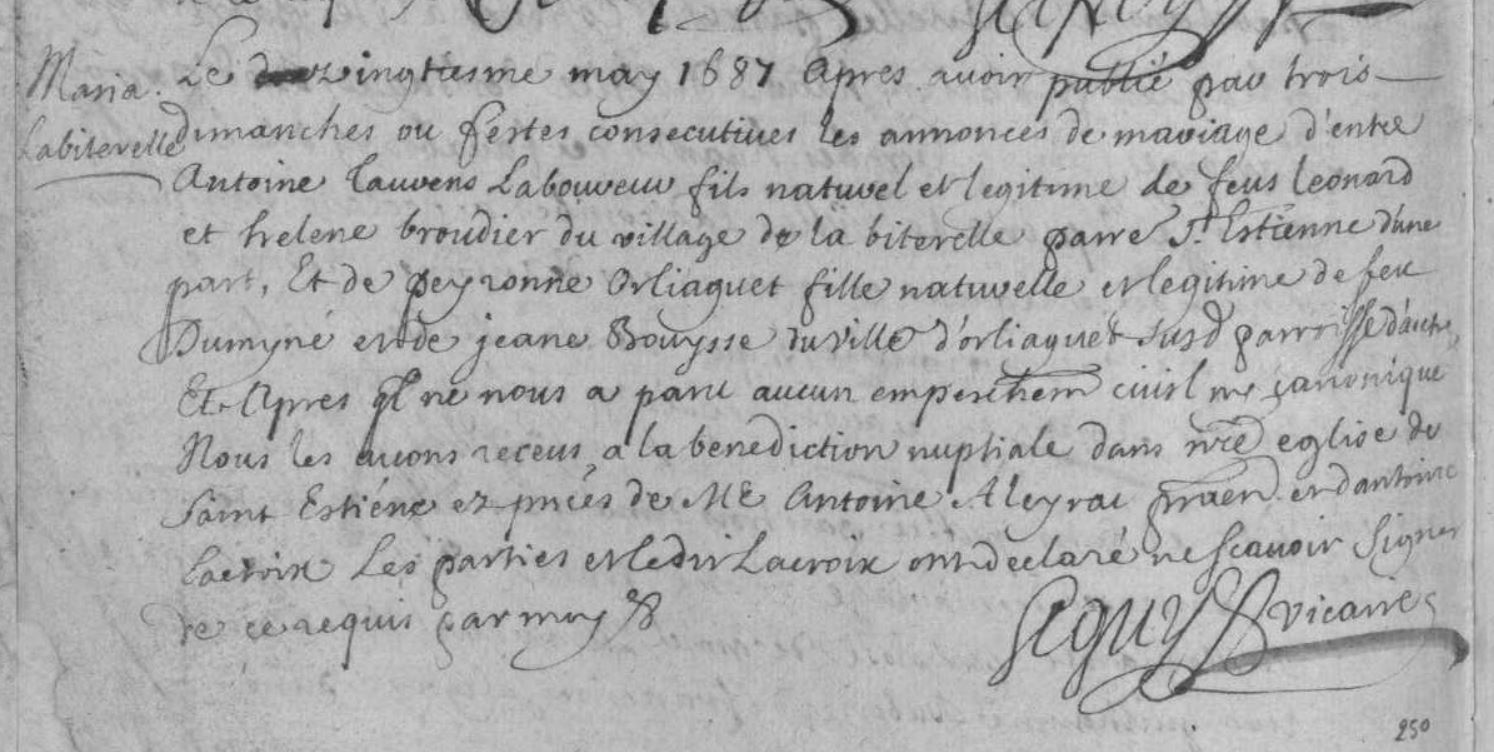 Maria.
Labiterelle
Le vingtiesme may 1687 Apres avoir publié par trois
dimanches ou festes consecutives les annonces de mariage d'entre
Antoine Laurens Laboureur fils naturel et legitime de feus Leonard
et helene broudier du village de la biterelle parre St Estienne d'une
part, Et de peyronne Orliaguet fille naturelle et legitime de feu
Dumyné et de jeane Bouysse du ville d'orliaguet susd parroisse d'autre,
Et Apres ql ne nous a paru aucun empeschem civil ne canonique
Nous les avons receus a la benediction nuptiale dans nre eglise de
saint Estiéne ez pnces de Me Antoine Aleyrac et d'antoine
Lacroix Les parties et ledit Lacroix ont declaré ne scavoir signer
de ce requis par moy
Seguy vicaire
250